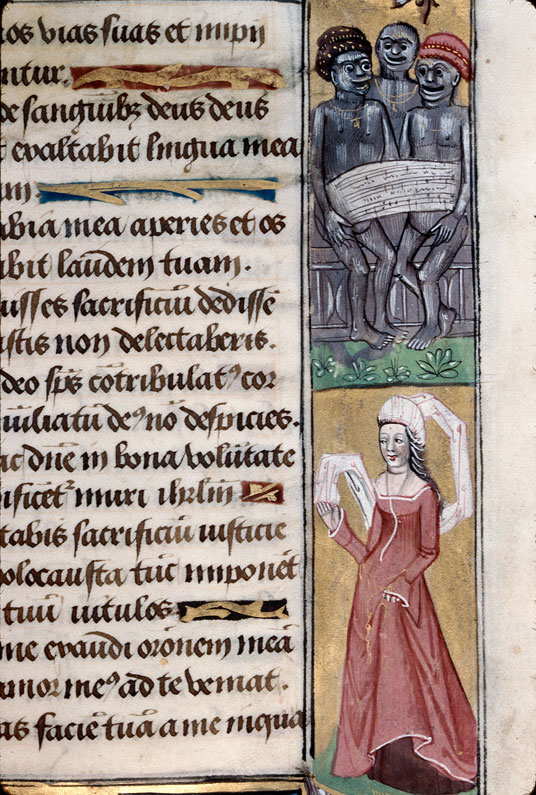 os vias suas et impij
ntur.
de sanguinibꝫ deus deus
t exaltabit lingua mea
am
abia mea aperies et os
abit laudem tuam.
uisses sacrificiū dedissē
ustis non delectaberis.
deo sp̄s cōtribulatꝰ cor
umiliatū deꝰ nō despicies.
ac dn̄e in bona volūtate
ificēt muri ihrl̄m
tabis sacrificiū iusticie
holocausta tūc imponēt
tuū vitulos
me exaudi orōnem meā
amor meꝰ ad te veniat.
as faciē tuā a me inqua